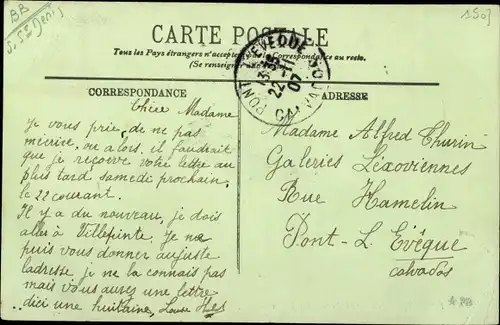 BB
S. St Denis
1507
CARTE POSTALE
Tous les Pays étrangers n'acceptent la Correspondance au recto.
(Se renseigner
PONT-L'EVEQUE
22-11
07
CALVADOS
CORRESPONDANCE
ADRESSE
Chère Madame
Je vous prie, de ne pas
ne alors, il faudrait
que je reçoive votre lettre au
plus tard samedi prochain,
le 22 courant.
Il y a du nouveau, je dois
aller à Villepinte. Je ne
puis vous donner au juste
ladresse, je ne la connais pas
mais vous aurez une lettre
dici une huitaine,
Madame Alfred Thurin
Galeries Lexoviennes
Rue Hamelin
Pont-L. Evêque
Calvados